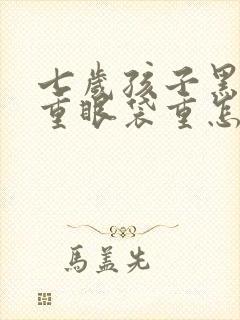 七岁孩子黑
重眼袋重怎
馬盖先